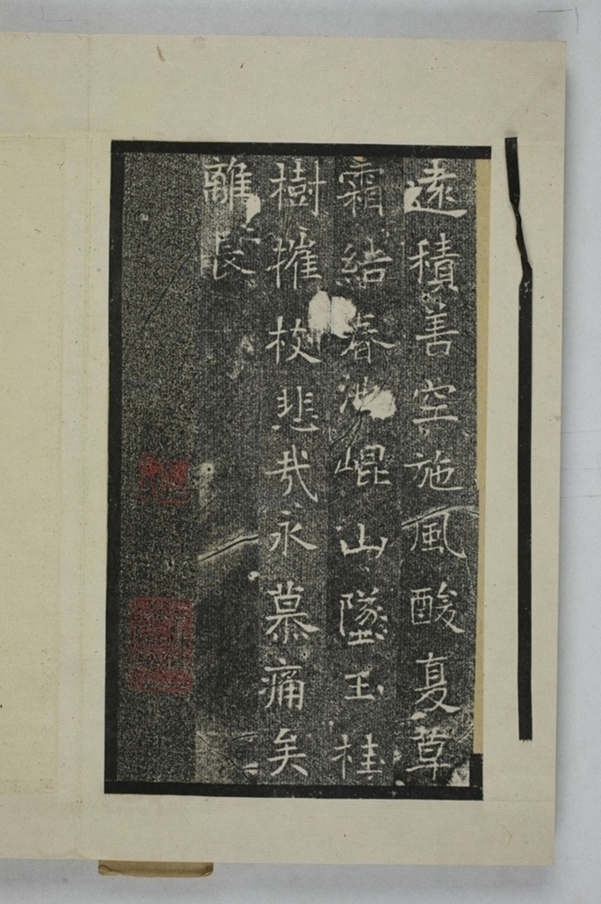 遠積善空施風酸夏草
霜結春池崐山墜玉桂
樹摧枝悲哉永慕痛矣
離長